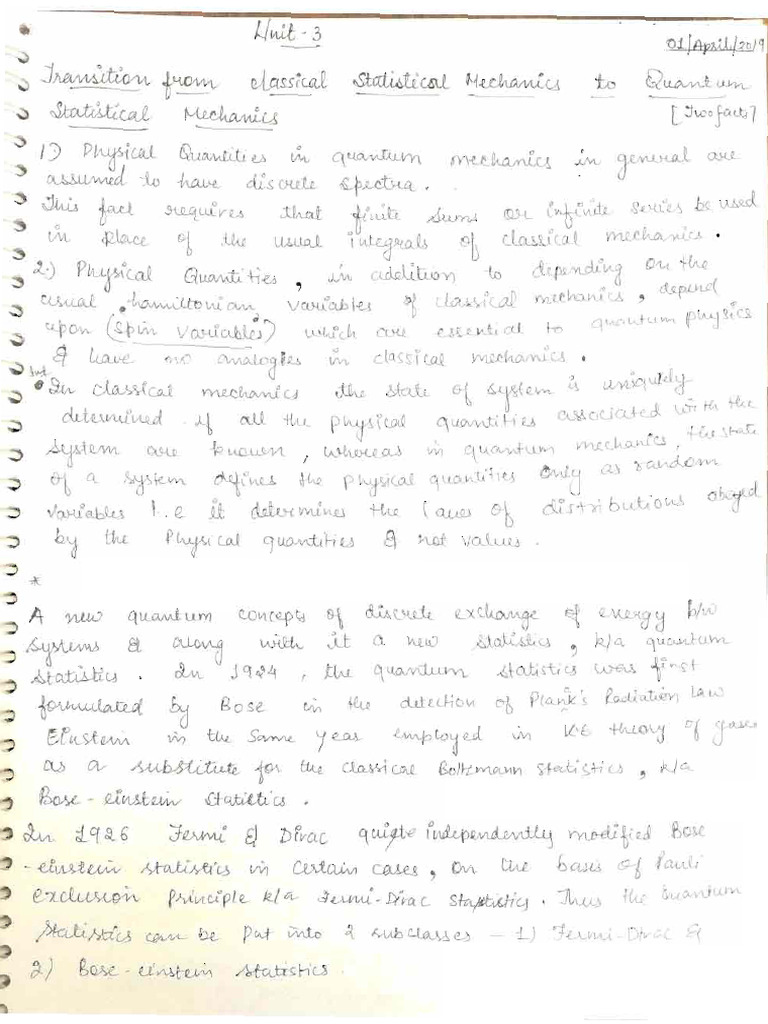 Unit - 3
01/April/2019
Transition from classical Statistical Mechanics to Quantum
Statistical Mechanics [Two facts]
1) Physical Quantities in quantum mechanics in general are
assumed to have discrete spectra.
This fact requires that finite sums or infinite series be used
in place of the usual integrals of classical mechanics.
2.) Physical Quantities, in addition to depending on the
usual hamiltonian variables of classical mechanics, depend
upon (spin variables) which are essential to quantum physics
& have no analogies in classical mechanics.
In classical mechanics the state of system is uniquely
determined if all the physical quantities associated with the
system are known, whereas in quantum mechanics, the state
of a system defines the physical quantities only as random
variables i.e it determines the laws of distributions obeyed
by the Physical quantities & not values.
*
A new quantum concepts of discrete exchange of energy b/w
systems & along with it a new statistics, k/a quantum
statistics. In 1924, the quantum statistics was first
formulated by Bose in the detection of Plank's Radiation law
Einstein in the same year employed in K.E theory of gases
as a substitute for the classical Boltzmann statistics, k/a
Bose-einstein Statistics.
In 1926 Fermi & Dirac quite independently modified Bose
-einstein statistics in certain cases, on the basis of Pauli
exclusion principle k/a Fermi-Dirac Statistics. Thus the quantum
statistics can be put into 2 subclasses - 1) Fermi-Dirac &
2) Bose-einstein statistics.